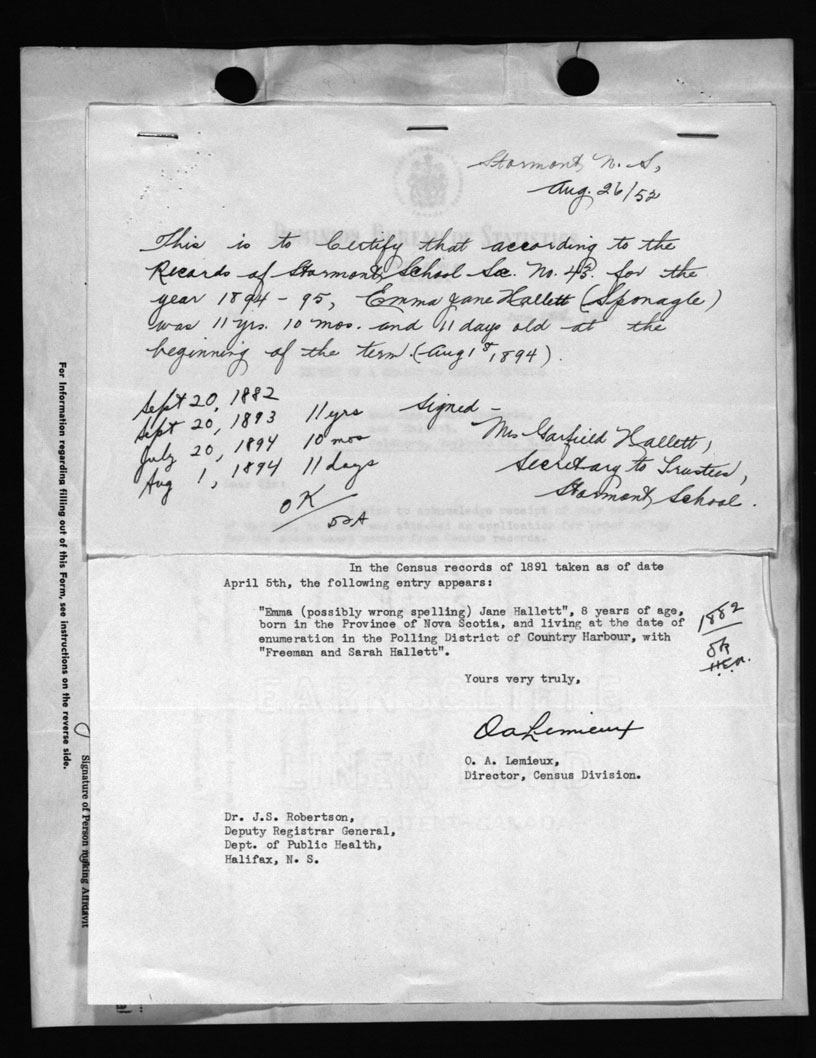 Stormont, N. S,
Aug. 26/52
This is to Certify that according to the
Records of Stormont School Sec. No. 43. for the
year 1894 - 95, Emma Jane Hallett (Sponagle)
was 11 yrs. 10 mos. and 11 days old at the
beginning of the term. (Aug 1st, 1894).
Sept 20, 1882
Sept 20, 1893 11 yrs
July 20, 1894 10 mos
Aug 1, 1894 11 days
OK
Signed -
Mrs Garfield Hallett,
Secretary to Trustees,
Stormont School.
DOMINION BUREAU OF STATISTICS
In the Census records of 1891 taken as of date
April 5th, the following entry appears:
"Emma (possibly wrong spelling) Jane Hallett", 8 years of age,
born in the Province of Nova Scotia, and living at the date of
enumeration in the Polling District of Country Harbour, with
"Freeman and Sarah Hallett".
1882
Yours very truly,
OALemieux
O. A. Lemieux,
Director, Census Division.
Dr. J.S. Robertson,
Deputy Registrar General,
Dept. of Public Health,
Halifax, N. S.
For Information regarding filling out of this Form, see instructions on the reverse side.
Signature of Person making Affidavit